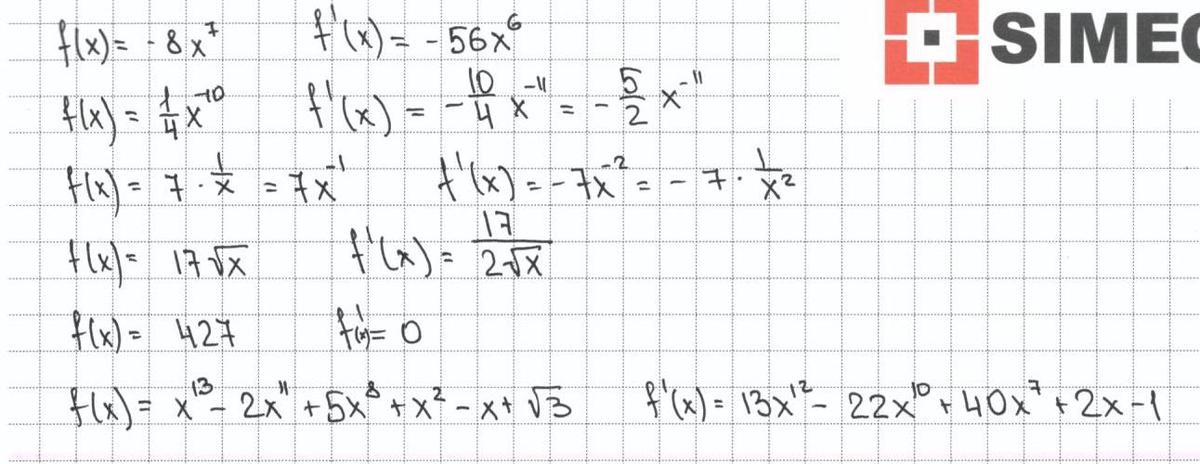 f(x) = -8x⁷ f'(x) = -56x⁶
SIMEC
f(x) = 1/4 x⁻¹⁰ f'(x) = -10/4 x⁻¹¹ = -5/2 x⁻¹¹
f(x) = 7 · 1/x = 7x⁻¹ f'(x) = -7x⁻² = -7 · 1/x²
f(x) = 17√x f'(x) = 17/(2√x)
f(x) = 427 f'(x) = 0
f(x) = x¹³ - 2x¹¹ + 5x⁸ + x² - x + √3 f'(x) = 13x¹² - 22x¹⁰ + 40x⁷ + 2x - 1